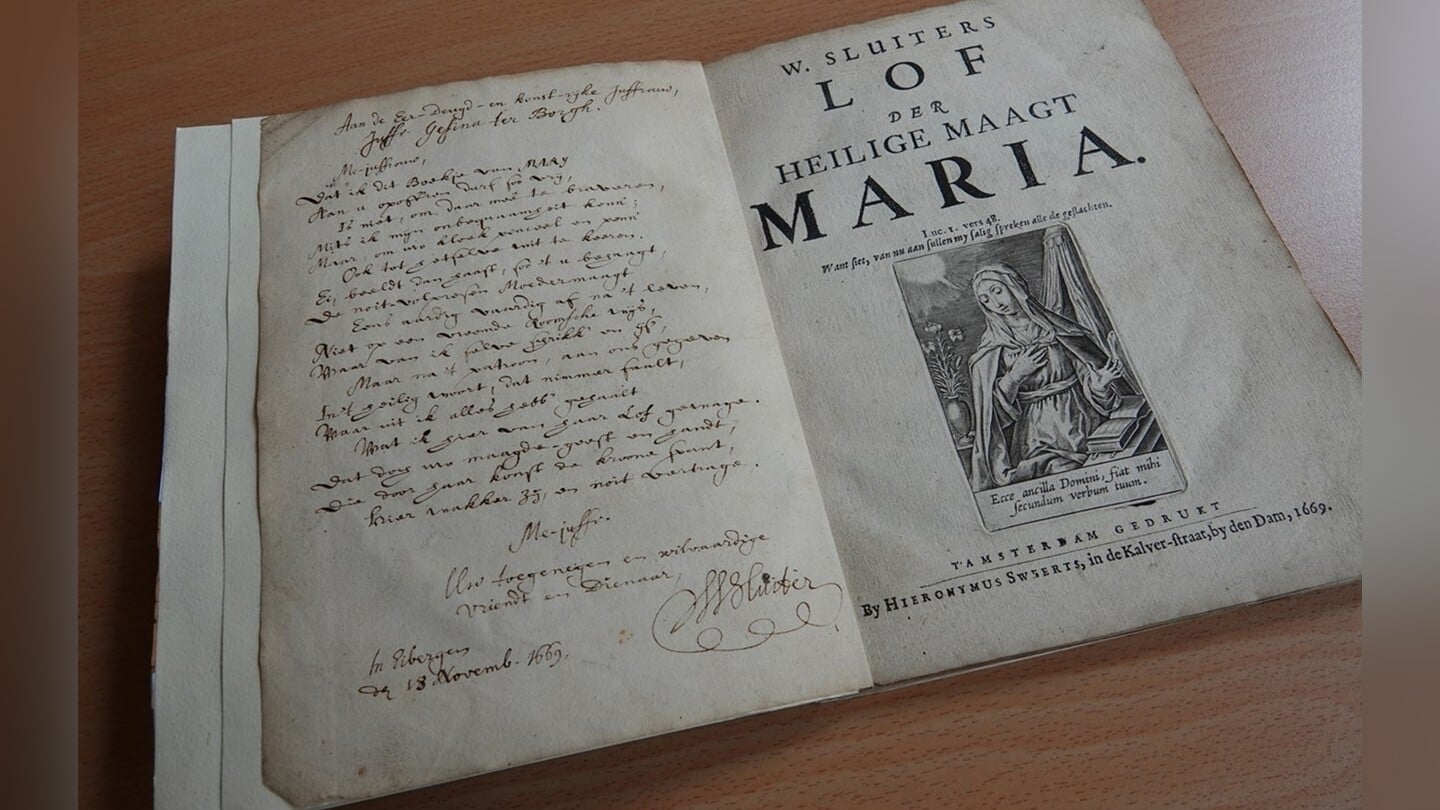 Aan de Eer- Deugd- en konst-ryke Juffrouw,
Juffr. Gesina ter Borgh.
Me-juffrouw,
Dat ik dit Boekje van MARY
Aan u opoff'ren darf soo vry,
Is niet, om daar mee te braveren,
Mits ik mijn onbequaamheit kenn;
Maar, om uw kloek pinceel en penn
Ook tot hetselve uit te keeren.
Ei, beeldt dan haast, soo 't u behaagt,
De noit-volpresen Moedermaagt
Eens aardig vaardig af na 't leven,
Niet op een vreemde Roomsche wijs,
Waar van ik selve schrikk en ijs,
Maar na 't patroon, aan ons gegeven
In 't heilig woort, dat nimmer faalt,
Waar uit ik alles hebb' gehaalt
Wat ik hier van haar Lof gewage.
Dat dog uw maagde-geest en handt,
Die door haar konst de kroone spant,
Hier wakker zij, en noit vertrage.
Me-juffr.
Uw toegenegen en wilvaardige
vriendt en Dienaar,
WSluiter
In Eibergen
den 13 Novemb. 1669.
W. SLUITERS
LOF
DER
HEILIGE MAAGT
MARIA.
Luc. 1. vers 48.
Want siet, van nu aan sullen my salig spreken alle de geslachten.
Ecce ancilla Domini, fiat mihi
secundum verbum tuum.
T'AMSTERDAM GEDRUKT
By HIERONYMUS SWEERTS, in de Kalver-straat, by den Dam, 1669.